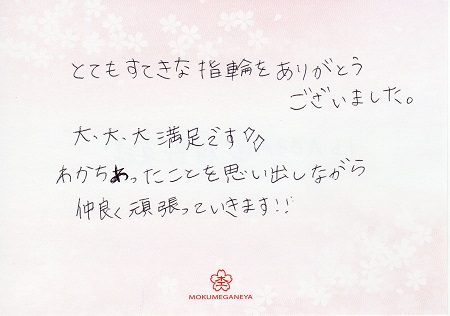 とてもすてきな指輪をありがとう
ございました。
大、大、大満足です◇◇
わかちあったことを思い出しながら
仲良く頑張っていきます!!
MOKUMEGANEYA